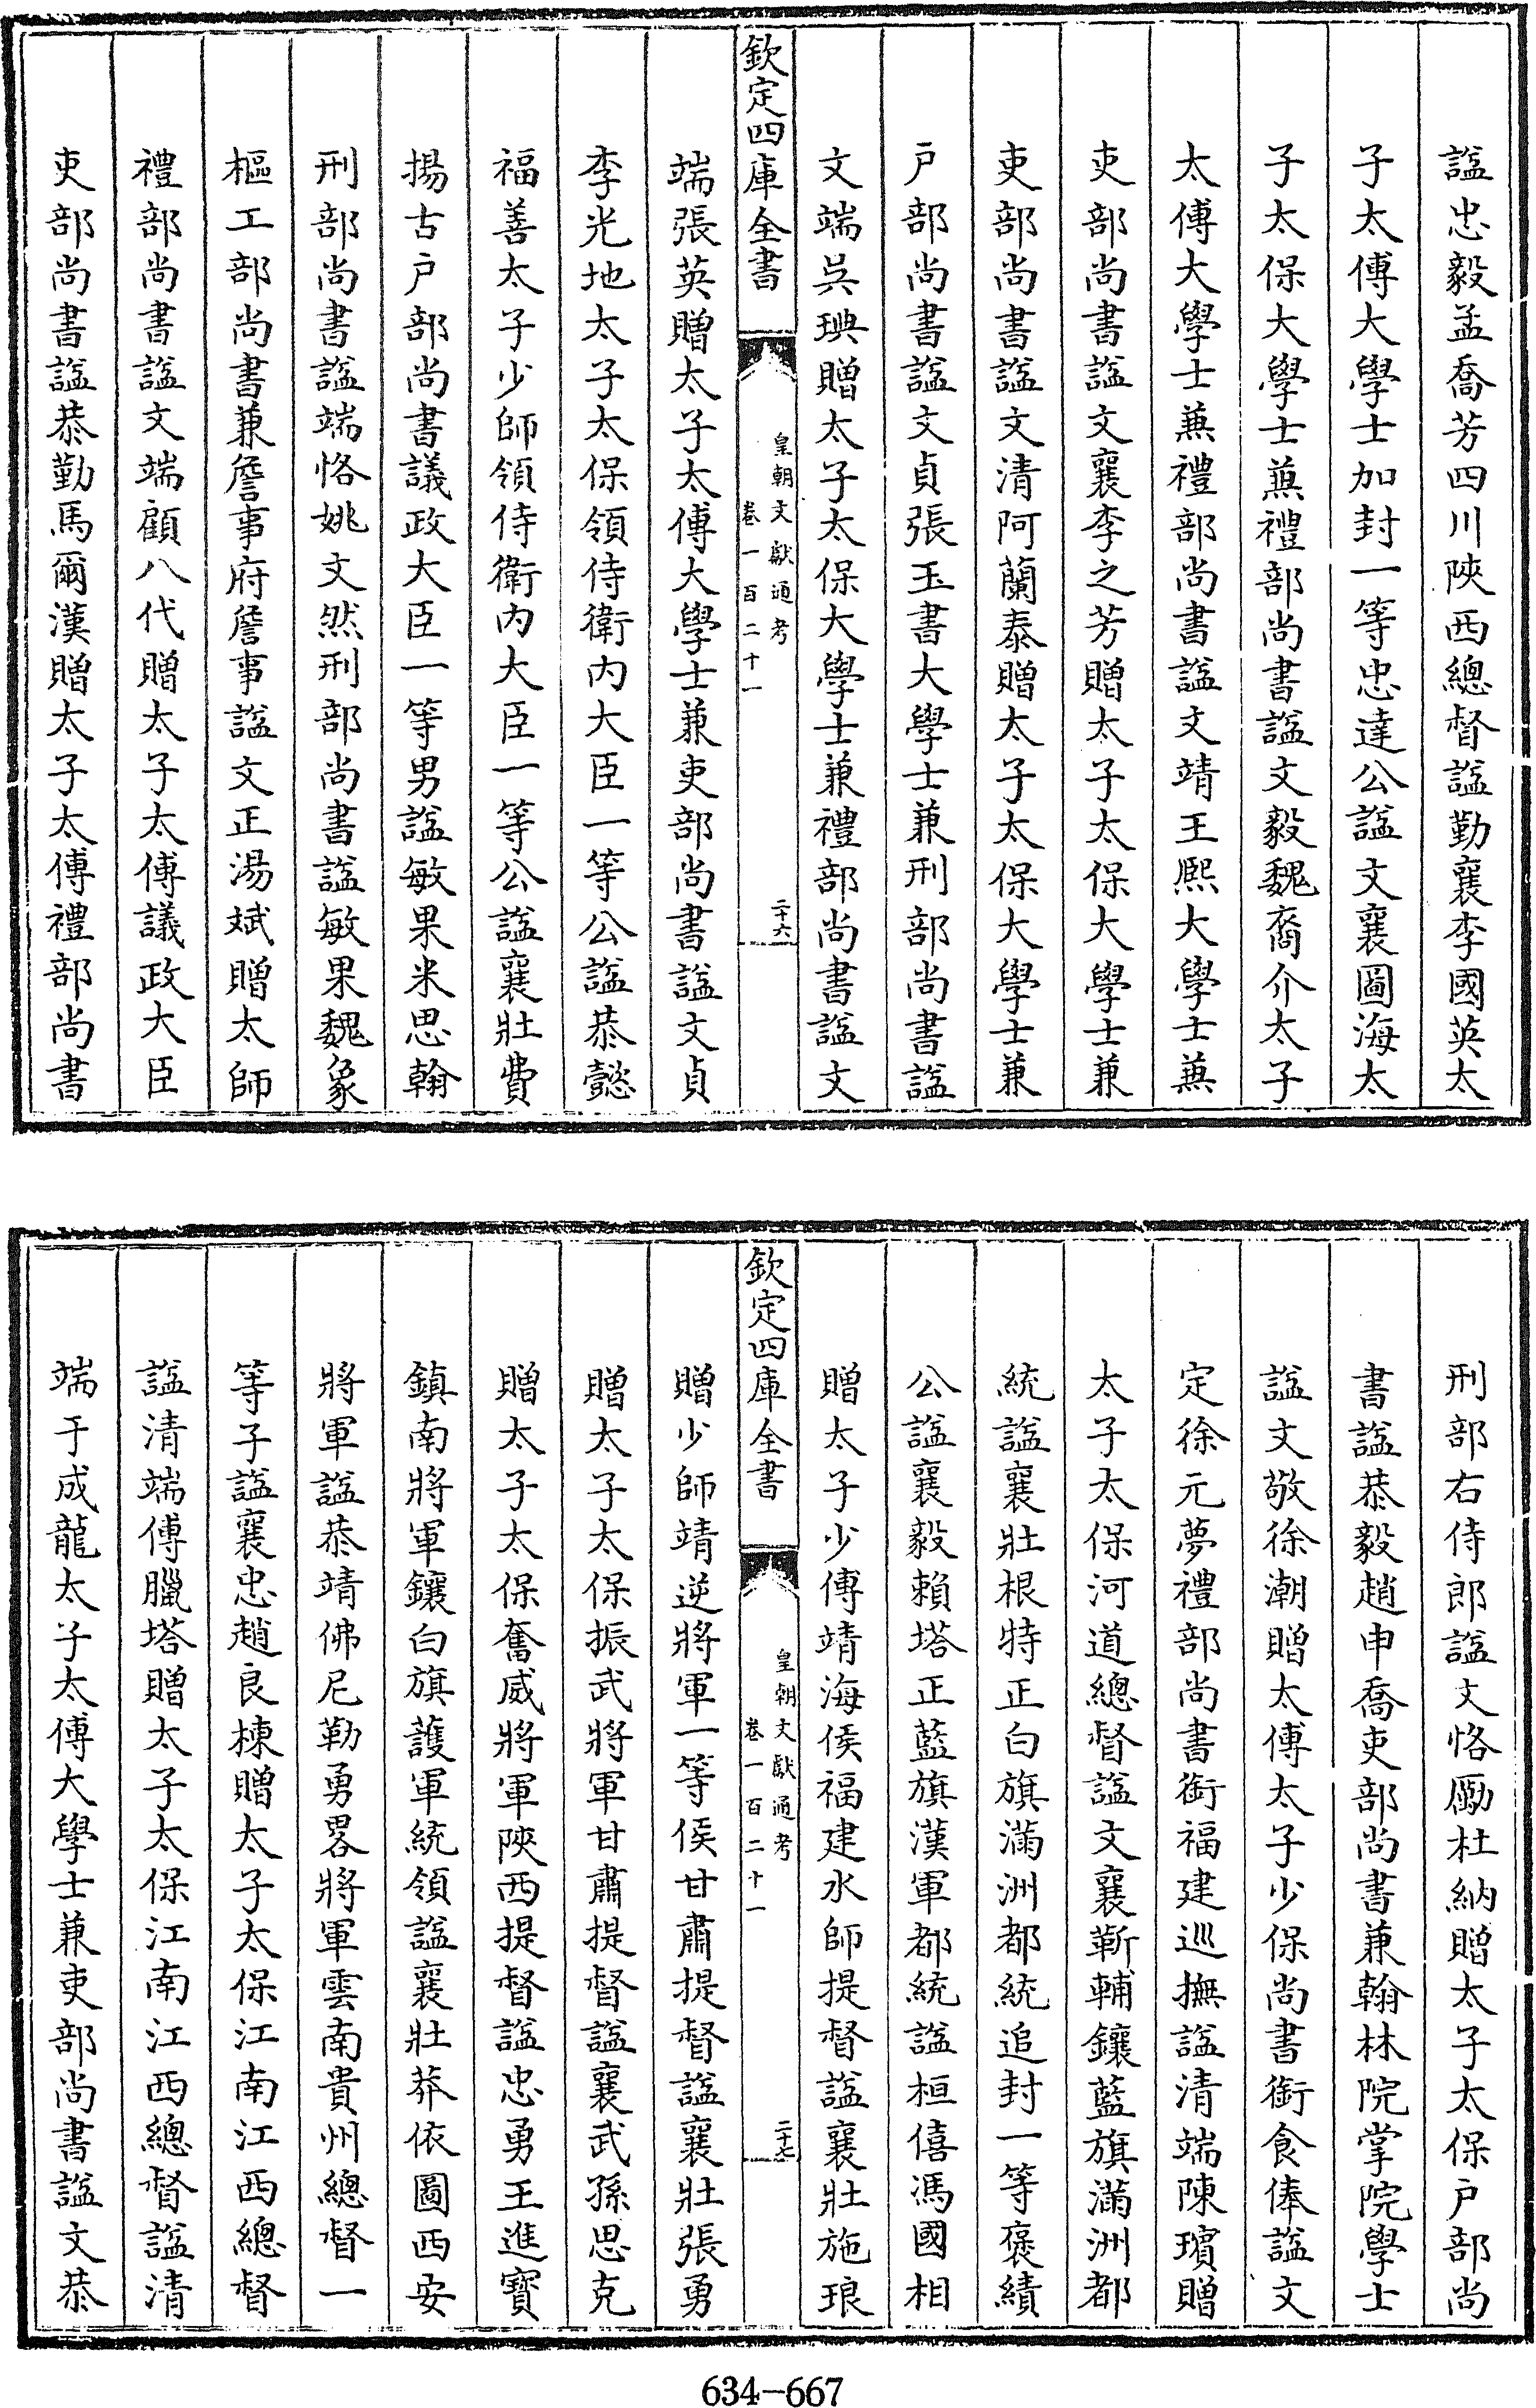 諡忠毅孟喬芳四川陜西總督諡勤襄李國英太
子太傅大學士加封一等忠達公諡文襄圖海太
子太保大學士兼禮部尚書諡文毅魏裔介太子
太傅大學士兼禮部尚書諡文靖王熙大學士兼
吏部尚書諡文襄李之芳贈太子太保大學士兼
吏部尚書諡文清阿蘭泰贈太子太保大學士兼
戶部尚書諡文貞張玉書大學士兼刑部尚書諡
文端吳琠贈太子太保大學士兼禮部尚書諡文
欽定四庫全書
皇朝文獻通考
卷一百二十一
二十六
端張英贈太子太傅大學士兼吏部尚書諡文貞
李光地太子太保領侍衛內大臣一等公諡恭懿
福善太子少師領侍衛內大臣一等公諡襄壯費
揚古戶部尚書議政大臣一等男諡敏果米思翰
刑部尚書諡端恪姚文然刑部尚書諡敏果魏象
樞工部尚書兼詹事府詹事諡文正湯斌贈太師
禮部尚書諡文端顧八代贈太子太傅議政大臣
吏部尚書諡恭勤馬爾漢贈太子太傅禮部尚書
刑部右侍郎諡文恪勵杜納贈太子太保戶部尚
書諡恭毅趙申喬吏部尚書兼翰林院掌院學士
諡文敬徐潮贈太傅太子少保尚書銜食俸諡文
定徐元夢禮部尚書銜福建巡撫諡清端陳璸贈
太子太保河道總督諡文襄靳輔鑲藍旗滿洲都
統諡襄壯根特正白旗滿洲都統追封一等褒績
公諡襄毅賴塔正藍旗漢軍都統諡桓僖馮國相
贈太子少傅靖海侯福建水師提督諡襄壯施琅
欽定四庫全書
皇朝文獻通考
卷一百二十一
二十七
贈少師靖逆將軍一等侯甘肅提督諡襄壯張勇
贈太子太保振武將軍甘肅提督諡襄武孫思克
贈太子太保奮威將軍陜西提督諡忠勇王進寶
鎮南將軍鑲白旗護軍統領諡襄壯莽依圖西安
將軍諡恭靖佛尼勒勇畧將軍雲南貴州總督一
等子諡襄忠趙良棟贈太子太保江南江西總督
諡清端傅臘塔贈太子太保江南江西總督諡清
端于成龍太子太傅大學士兼吏部尚書諡文恭
634-667